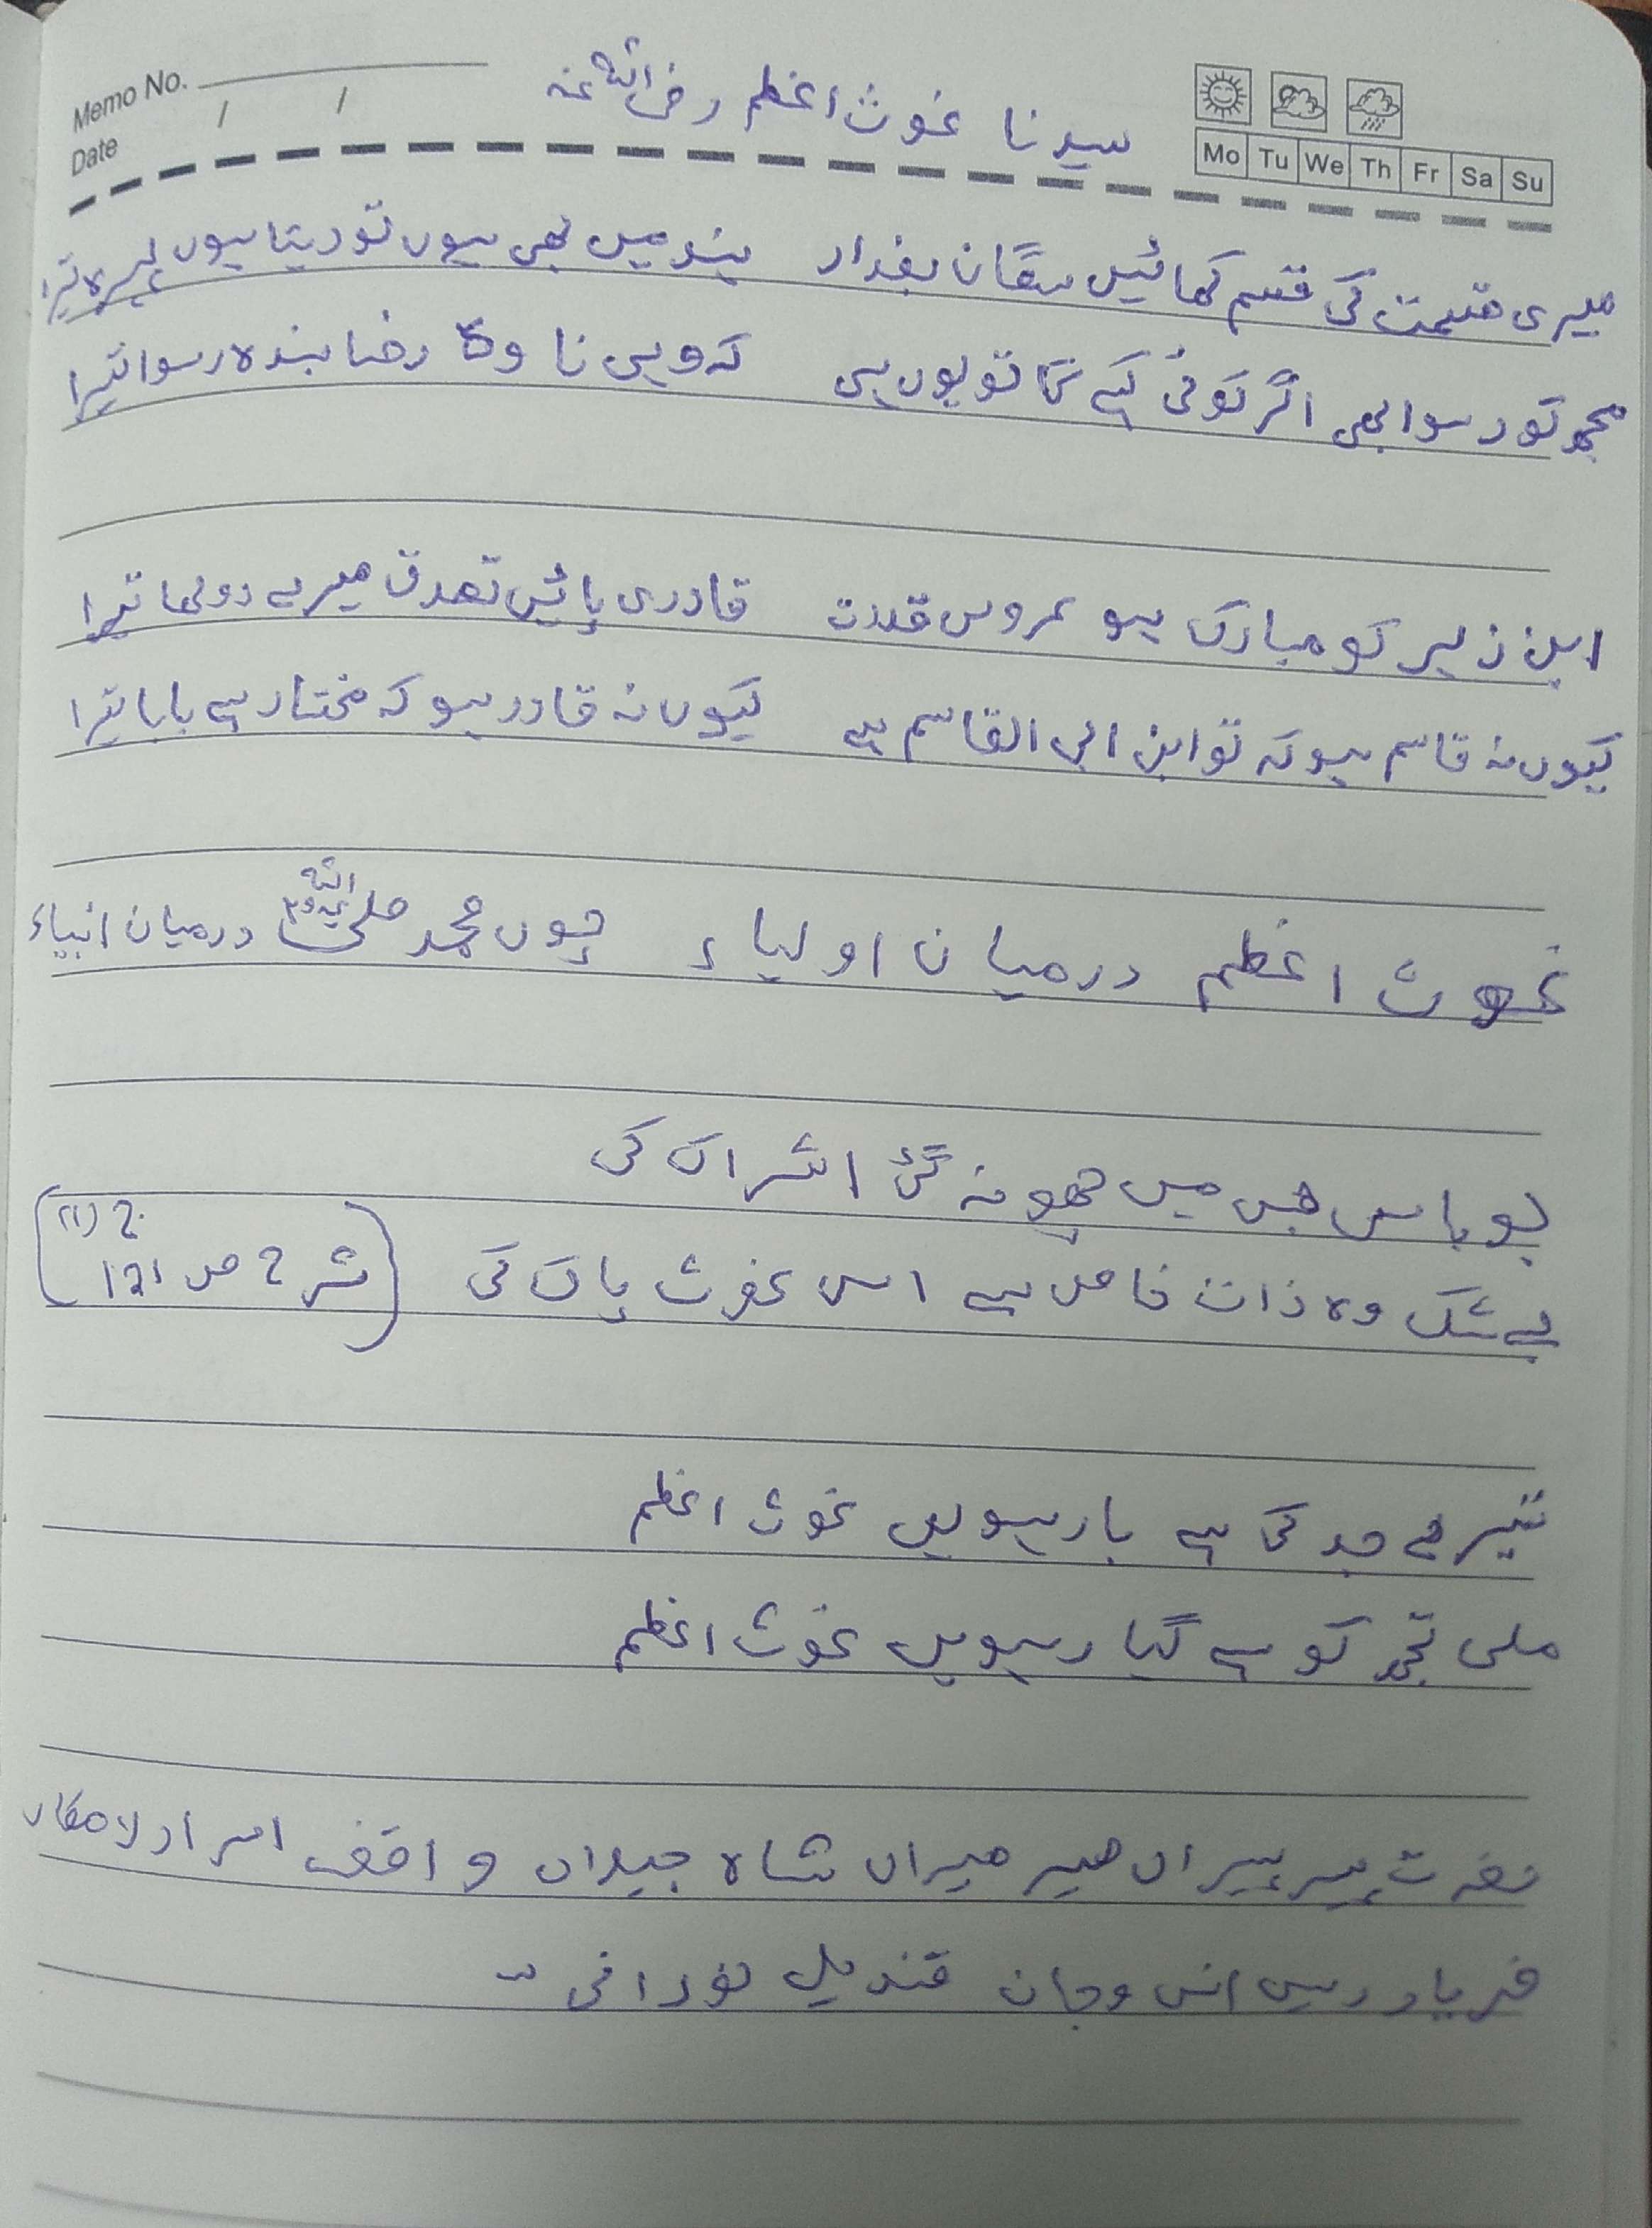 Memo No.
Date / /
Mo Tu We Th Fr Sa Su
سیدنا غوث اعظم رضی اللہ عنہ
میری قسمت کی قسم کھائیں سگان بغداد ہند میں بھی ہوں تو دیتا ہوں پہرہ تیرا
مجھ کو رسوا بھی اگر کوئی کہے گا تو یوں ہی کہ وہی نا وہ رضا بندہ رسوا تیرا
ابن زہر کو مبارک ہو عروس قدرت قادری پائیں تصدق میرے دولھا تیرا
کیوں نہ قاسم ہو کہ تو ابن ابی القاسم ہے کیوں نہ قادر ہو کہ مختار ہے بابا تیرا
غوث اعظم درمیان اولیاء چوں محمد صلی اللہ علیہ وسلم درمیان انبیاء
بو باس جس میں چھو نہ گئی اشراک کی
بے شک وہ ذات خاص ہے اس غوث پاک کی (شرح ص 121
تیرے جد کی ہے بارہویں غوث اعظم
ملی تجھ کو ہے گیارہویں غوث اعظم
حضرت پیر پیراں میر میراں شاہ جیلاں واقف اسرار لامکاں
فریاد رس انس وجان قندیل نورانی